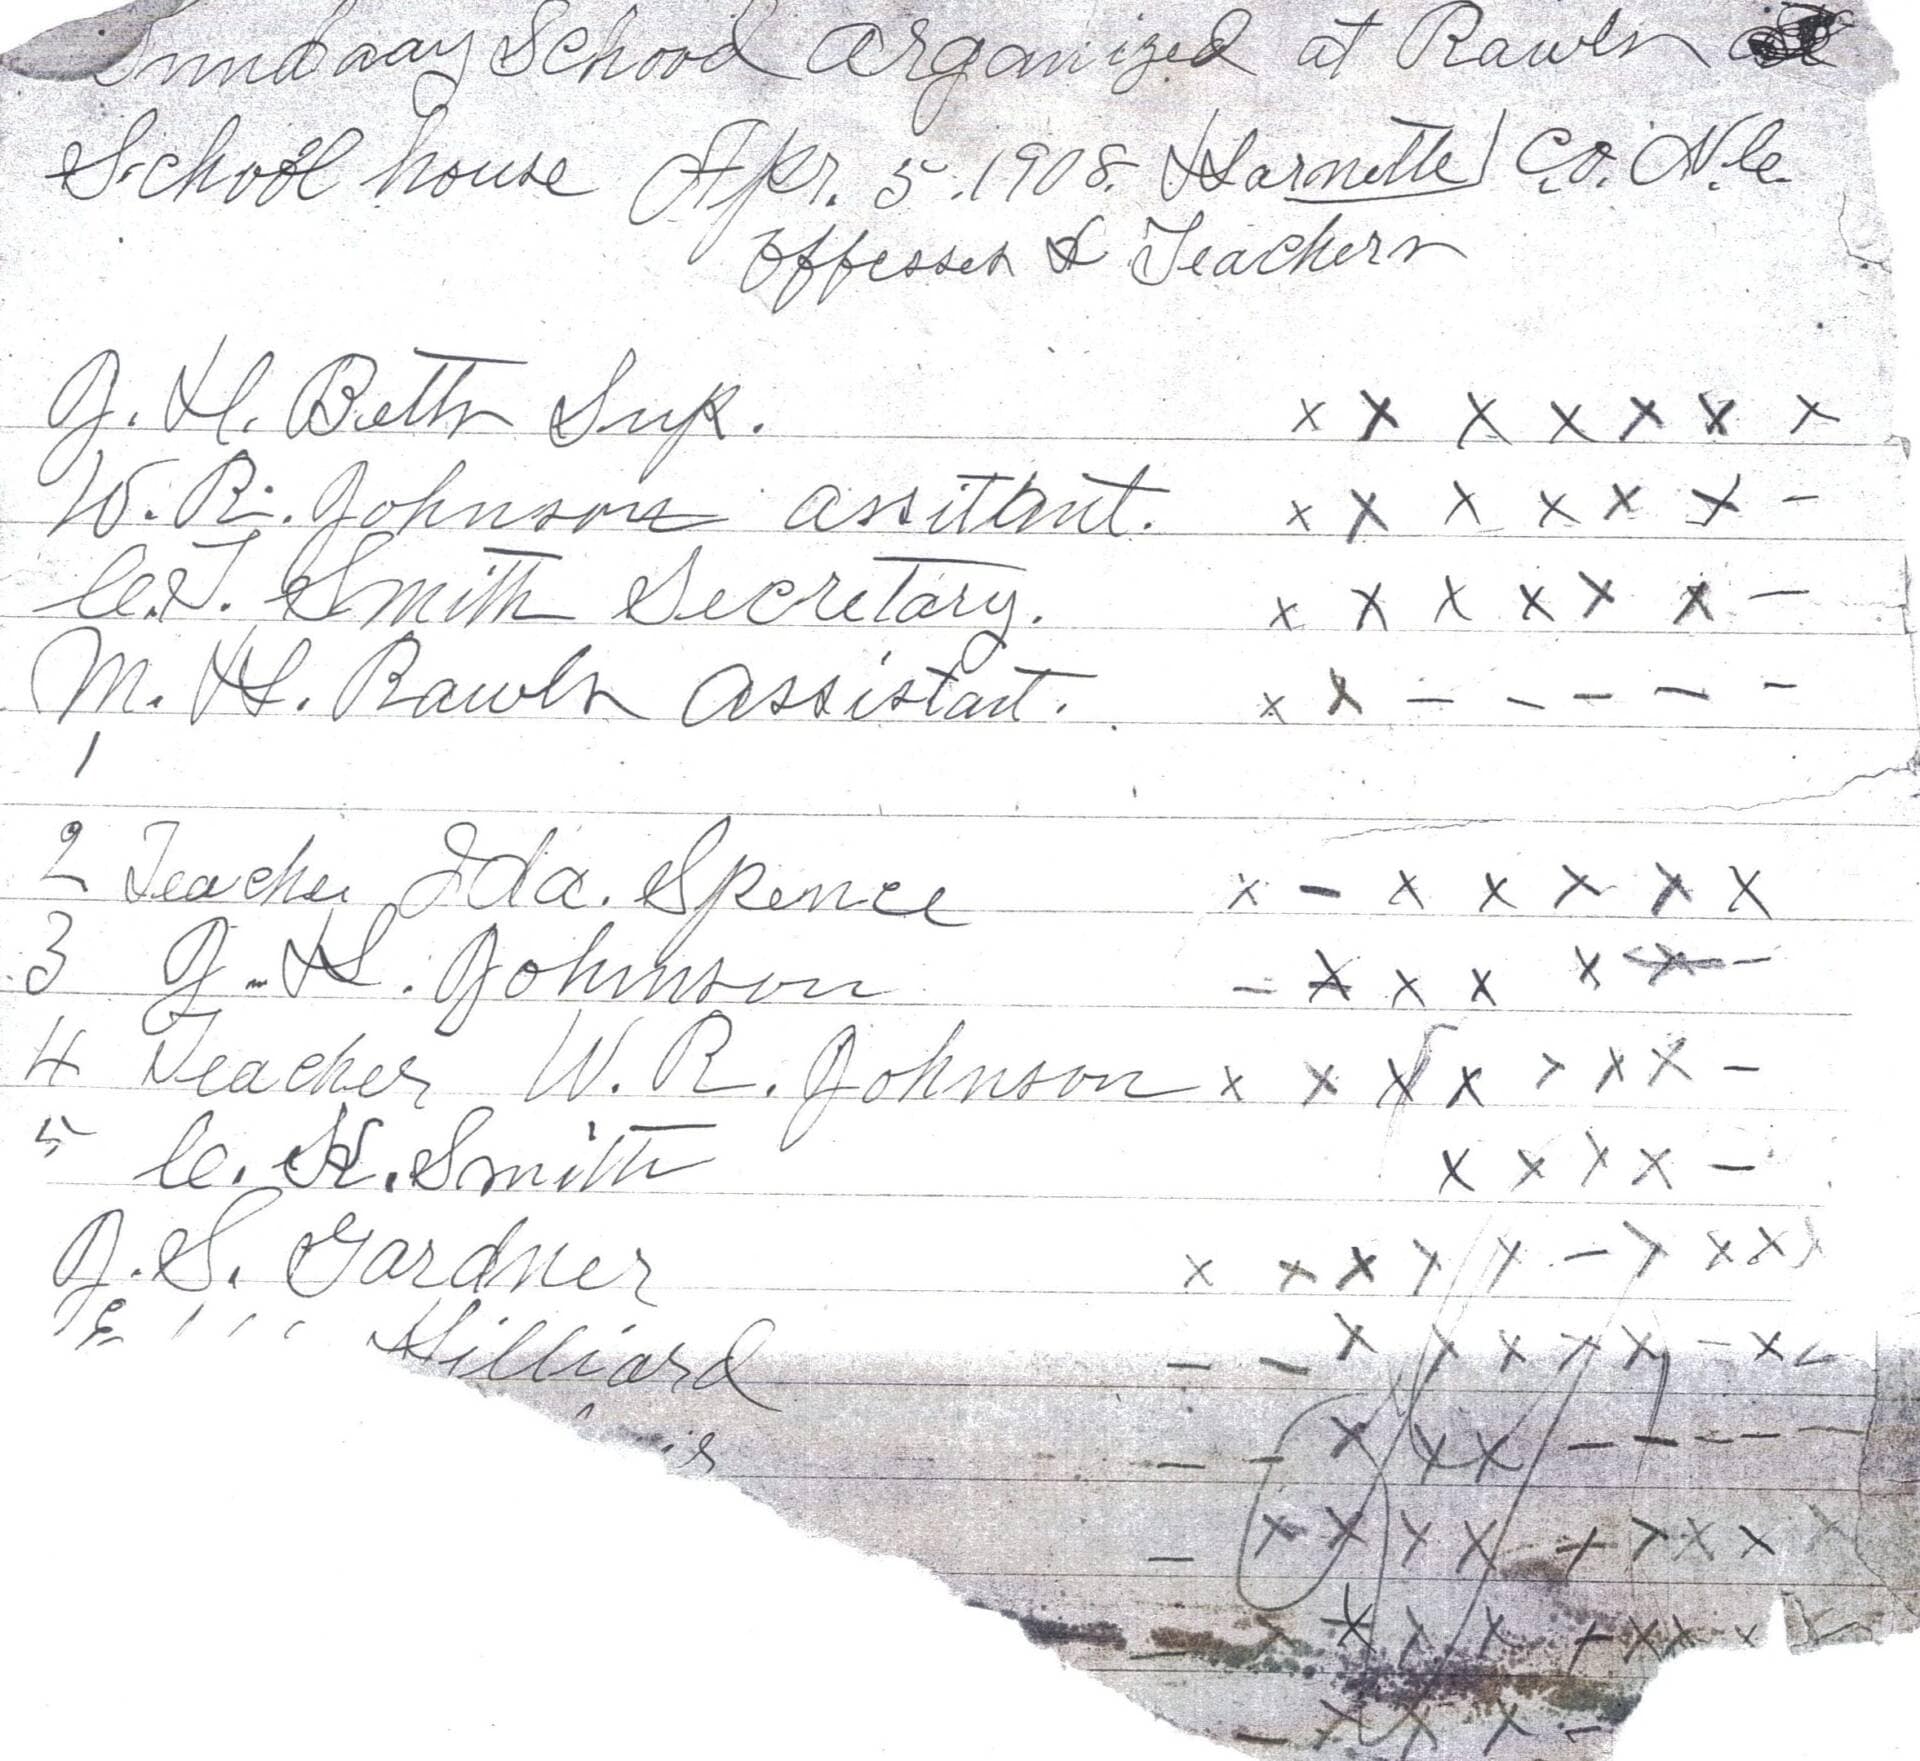 Sunndaay School organized at Rawls
School house Apr. 5. 1908. Harnette Co. N.C.
Offesses & Teachers
J. H. Betts Sup. x x x x x x x
W. R. Johnson assitant. x x x x x x -
C.T. Smith Secretary. x x x x x x -
M. H. Rawls assistant. x x - - - - -
1
2 Teacher Ida. Spence x - x x x x x
3 J. H. Johnson - x x x x x -
4 Teacher W. R. Johnson x x x x x x x -
5 C. H. Smith x x x x -
J. S. Gardner x x x x x - x x x x
Hilliard - - x x x x x - x
- - x x x - - - - -
- x x x x x x x x
x x x x x x x
- x x x -